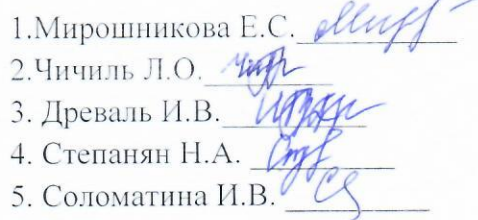 1.Мирошникова Е.С.
2.Чичиль Л.О.
3. Древаль И.В.
4. Степанян Н.А.
5. Соломатина И.В.